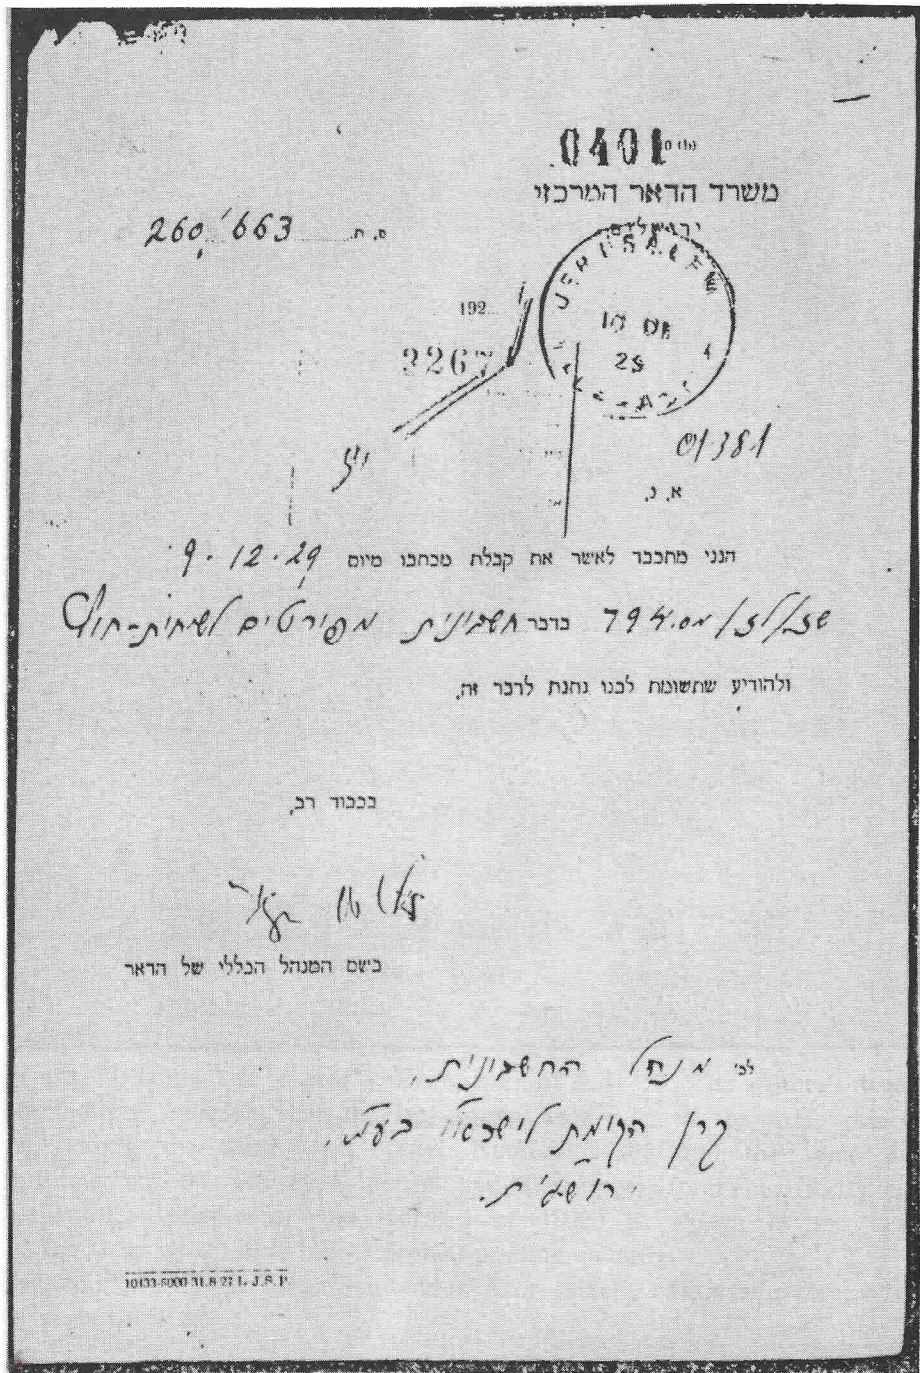 0401
משרד הדאר המרכזי
ירושלים
ס. ת. 260,663
JERUSALEM
192
10 DE
29
3267
01381
א. נ.
הנני מתכבד לאשר את קבלת מכתבו מיום 9.12.29
בדבר חשבונית מפורטים
ולהודיע שתשומת לבנו נתנת לדבר זה.
בכבוד רב,
בשם המנהל הכללי של הדאר
לכ' מנהל החשבונית,
קרן הקימת לישראל בע"מ,
10133-5000-31.8.27 L. J. S. P.